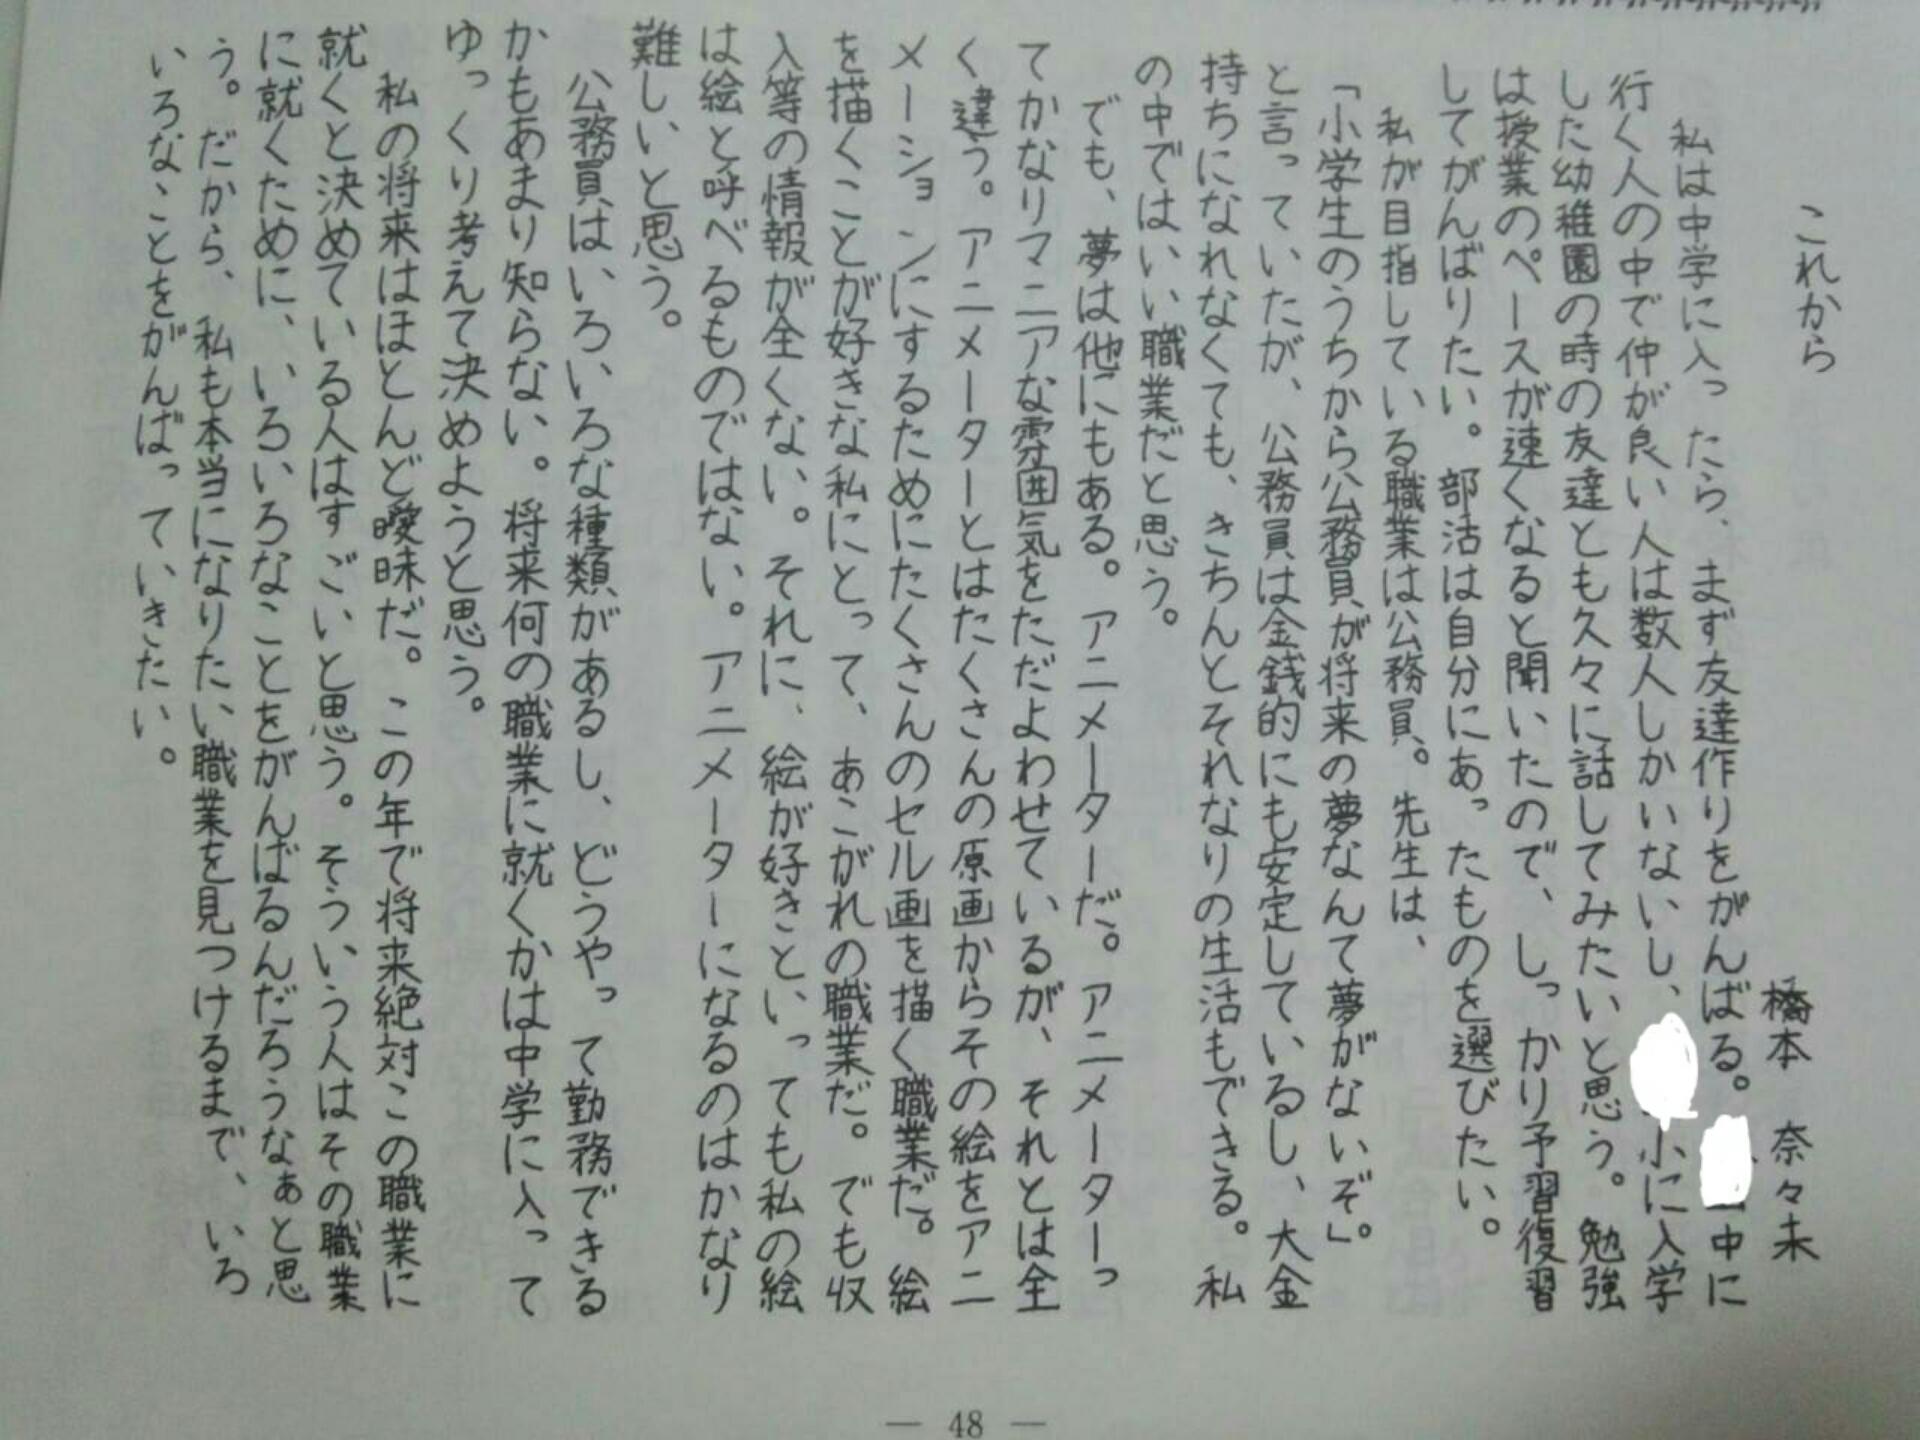 これから
橋本 奈々未
私は中学に入ったら、まず友達作りをがんばる。中に
行く人の中で仲が良い人は数人しかいないし、小に入学
した幼稚園の時の友達とも久々に話してみたいと思う。勉強
は授業のペースが速くなると聞いたので、しっかり予習復習
してがんばりたい。部活は自分にあったものを選びたい。
私が目指している職業は公務員。先生は、
「小学生のうちから公務員が将来の夢なんて夢がないぞ」。
と言っていたが、公務員は金銭的にも安定しているし、大金
持ちになれなくても、きちんとそれなりの生活もできる。私
の中ではいい職業だと思う。
でも、夢は他にもある。アニメーターだ。アニメーターっ
てかなりマニアな雰囲気をただよわせているが、それとは全
く違う。アニメーターとはたくさんの原画からその絵をアニ
メーションにするためにたくさんのセル画を描く職業だ。絵
を描くことが好きな私にとって、あこがれの職業だ。でも収
入等の情報が全くない。それに、絵が好きといっても私の絵
は絵と呼べるものではない。アニメーターになるのはかなり
難しいと思う。
公務員はいろいろな種類があるし、どうやって勤務できる
かもあまり知らない。将来何の職業に就くかは中学に入って
ゆっくり考えて決めようと思う。
私の将来はほとんど曖昧だ。この年で将来絶対この職業に
就くと決めている人はすごいと思う。そういう人はその職業
に就くために、いろいろなことをがんばるんだろうなぁと思
う。だから、私も本当になりたい職業を見つけるまで、いろ
いろなことをがんばっていきたい。
— 48 —